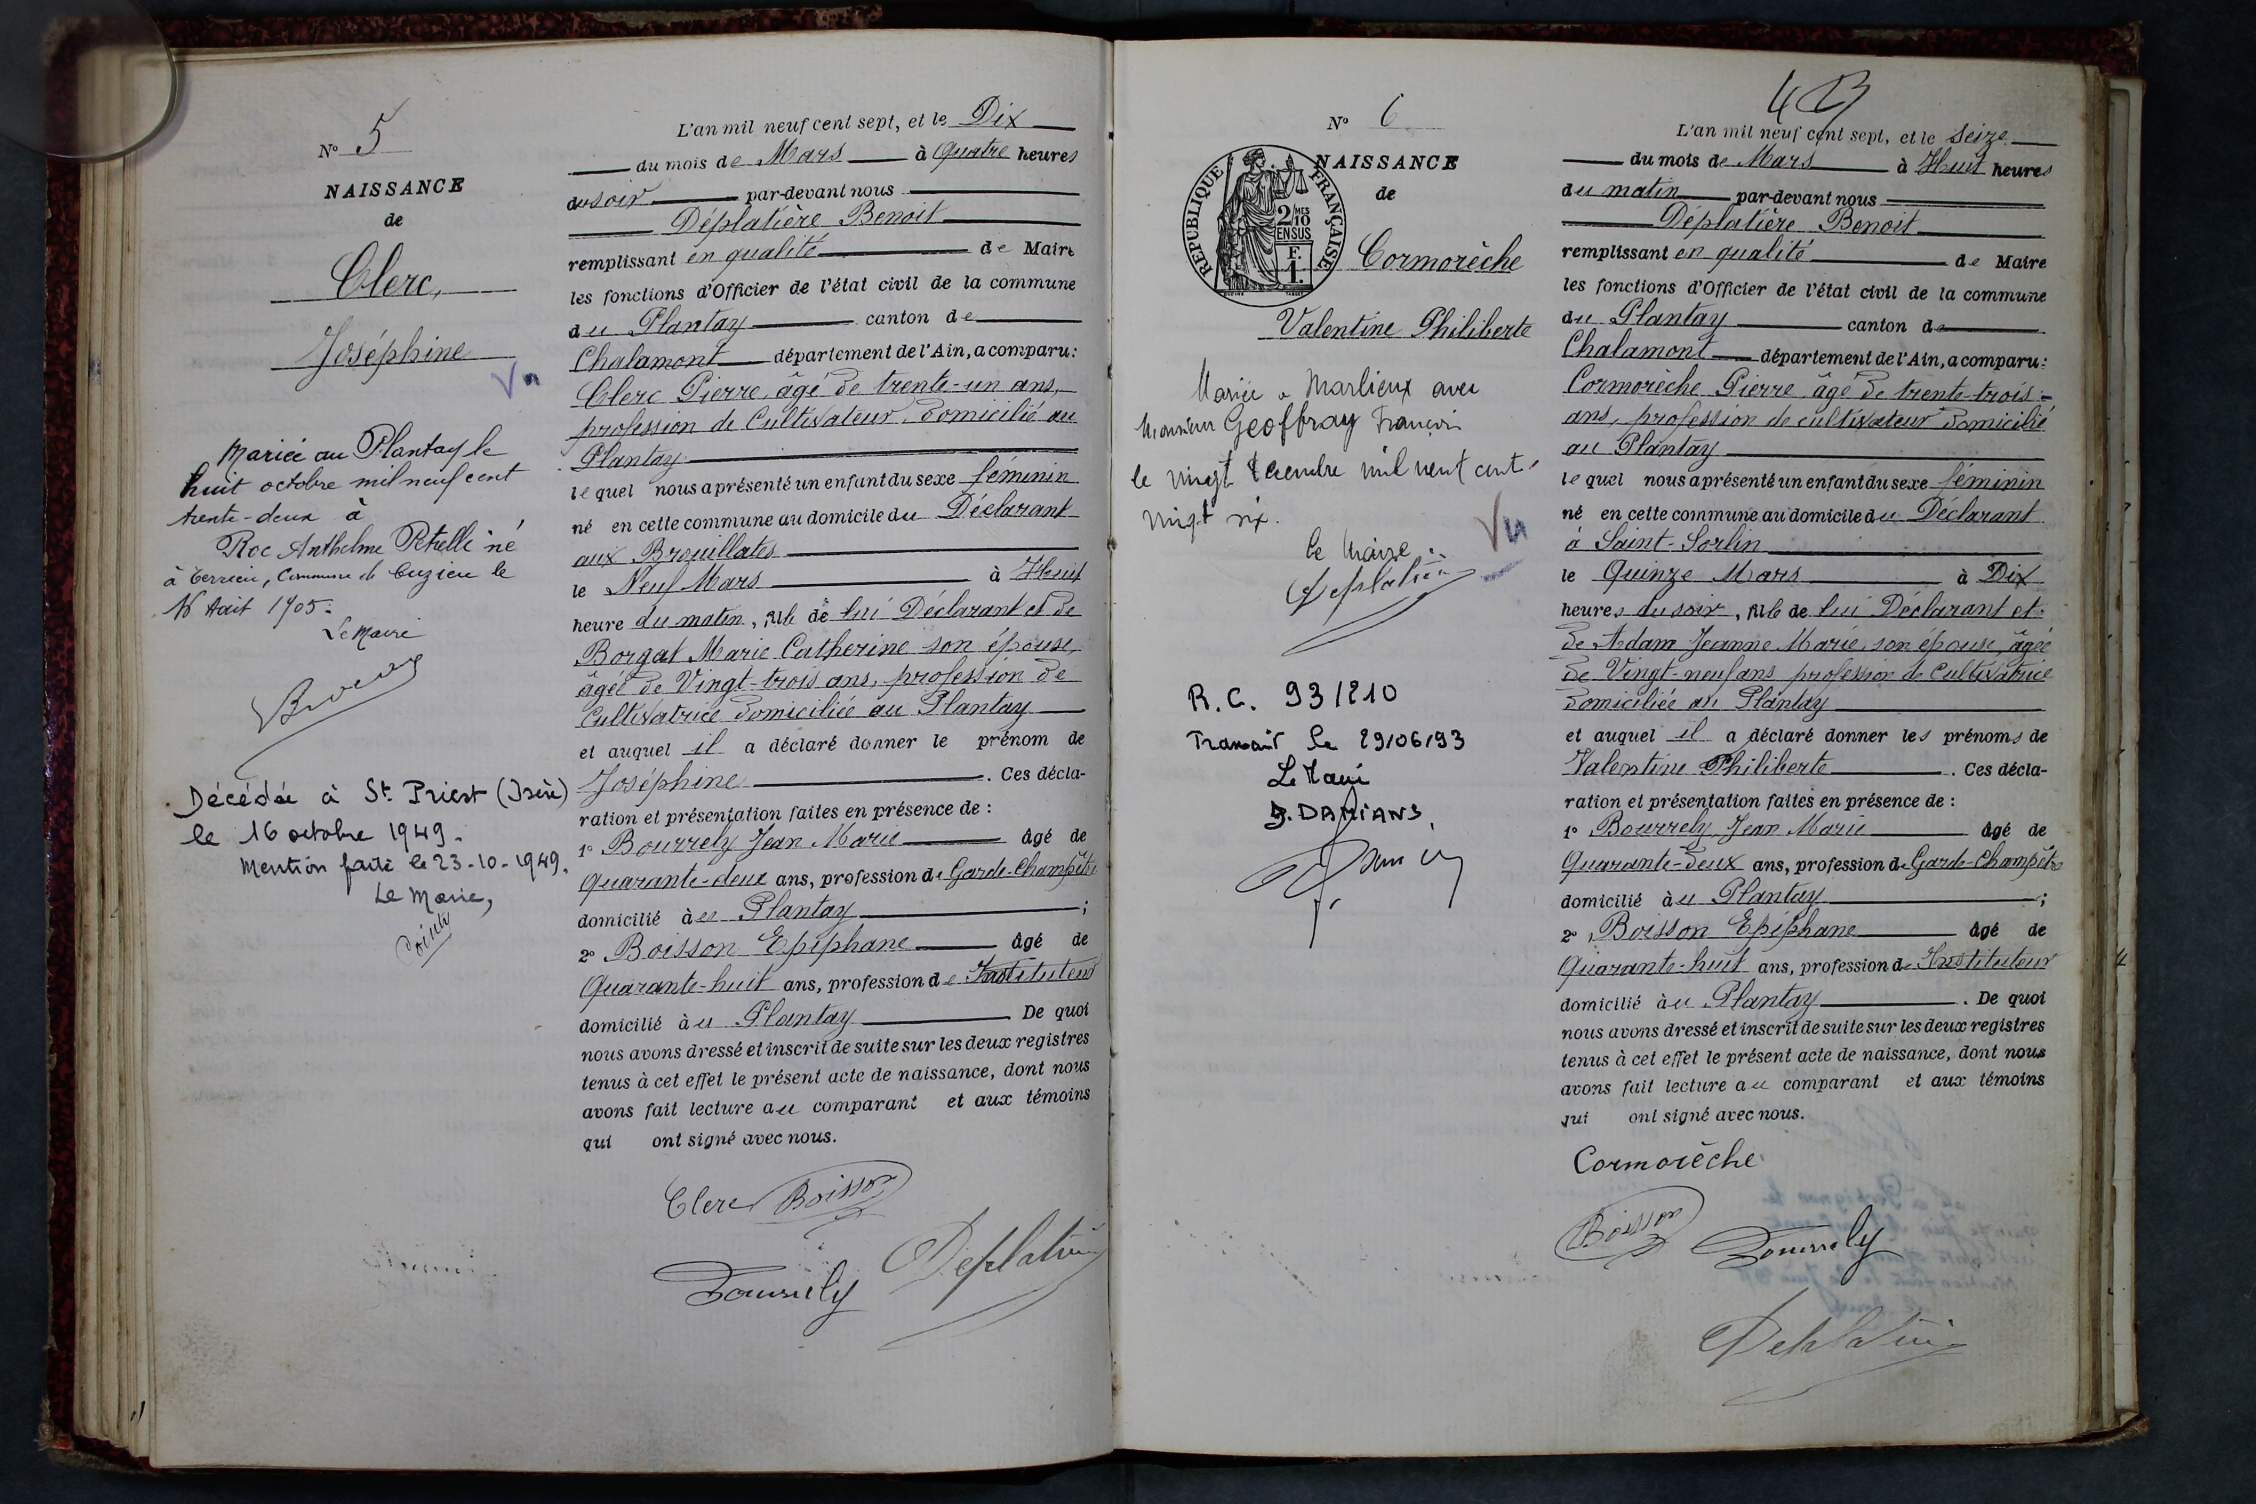 N° 5
NAISSANCE
de
Clerc,
Joséphine
Vu
Mariée au Plantay le
huit octobre mil neuf cent
trente-deux à
Roc Anthelme Petrelle né
à Cerrieu, Commune de Cuzieu le
16 Août 1905.
Le Maire
Décédée à St Priest (Isère)
le 16 octobre 1949.
Mention faite le 23-10-1949.
Le Maire,
L'an mil neuf cent sept, et le Dix
du mois de Mars à Quatre heures
du soir par-devant nous
Déplatière Benoit
remplissant en qualité de Maire
les fonctions d'Officier de l'état civil de la commune
du Plantay canton de
Chalamont département de l'Ain, a comparu:
Clerc Pierre, âgé de trente-un ans,
profession de Cultivateur domicilié au
Plantay
lequel nous a présenté un enfant du sexe féminin
né en cette commune au domicile du Déclarant
aux Brouillates
le Neuf Mars à Huit
heure du matin, fille de lui Déclarant et de
Borgat Marie Catherine son épouse,
âgée de Vingt-trois ans, profession de
Cultivatrice domiciliée au Plantay
et auquel il a déclaré donner le prénom de
Joséphine. Ces décla-
ration et présentation faites en présence de :
1° Bourrely Jean Marie âgé de
Quarante-deux ans, profession de Garde-Champêtre
domicilié au Plantay ;
2° Boisson Epiphane âgé de
Quarante-huit ans, profession de Instituteur
domicilié au Plantay De quoi
nous avons dressé et inscrit de suite sur les deux registres
tenus à cet effet le présent acte de naissance, dont nous
avons fait lecture au comparant et aux témoins
qui ont signé avec nous.
Clerc Boisson
Bourrely Déplatière
N° 6
NAISSANCE
de
RÉPUBLIQUE FRANÇAISE
2/10 MES
EN SUS
F.
1.
Cormorèche
Valentine Philiberte
Mariée à Marlieux avec
Monsieur Geoffray François
le vingt décembre mil neuf cent
vingt six.
Le Maire
Déplatière
Vu
R.C. 93/210
Transcrit le 29/06/93
Le Maire
J. DAMIANS
43
L'an mil neuf cent sept, et le Seize
du mois de Mars à Huit heures
du matin par-devant nous
Déplatière Benoit
remplissant en qualité de Maire
les fonctions d'Officier de l'état civil de la commune
du Plantay canton de
Chalamont département de l'Ain, a comparu:
Cormorèche Pierre âgé de trente-trois
ans, profession de cultivateur domicilié
au Plantay
lequel nous a présenté un enfant du sexe féminin
né en cette commune au domicile du Déclarant
à Saint-Sorlin
le Quinze Mars à Dix
heures du soir, fille de lui Déclarant et
de Adam Jeanne Marie, son épouse, âgée
de Vingt-neuf ans profession de Cultivatrice
domiciliée au Plantay
et auquel il a déclaré donner les prénoms de
Valentine Philiberte. Ces décla-
ration et présentation faites en présence de :
1° Bourrely Jean Marie âgé de
Quarante-deux ans, profession de Garde-Champêtre
domicilié au Plantay ;
2° Boisson Epiphane âgé de
Quarante-huit ans, profession de Instituteur
domicilié au Plantay. De quoi
nous avons dressé et inscrit de suite sur les deux registres
tenus à cet effet le présent acte de naissance, dont nous
avons fait lecture au comparant et aux témoins
qui ont signé avec nous.
Cormorèche
Boisson Bourrely
Déplatière